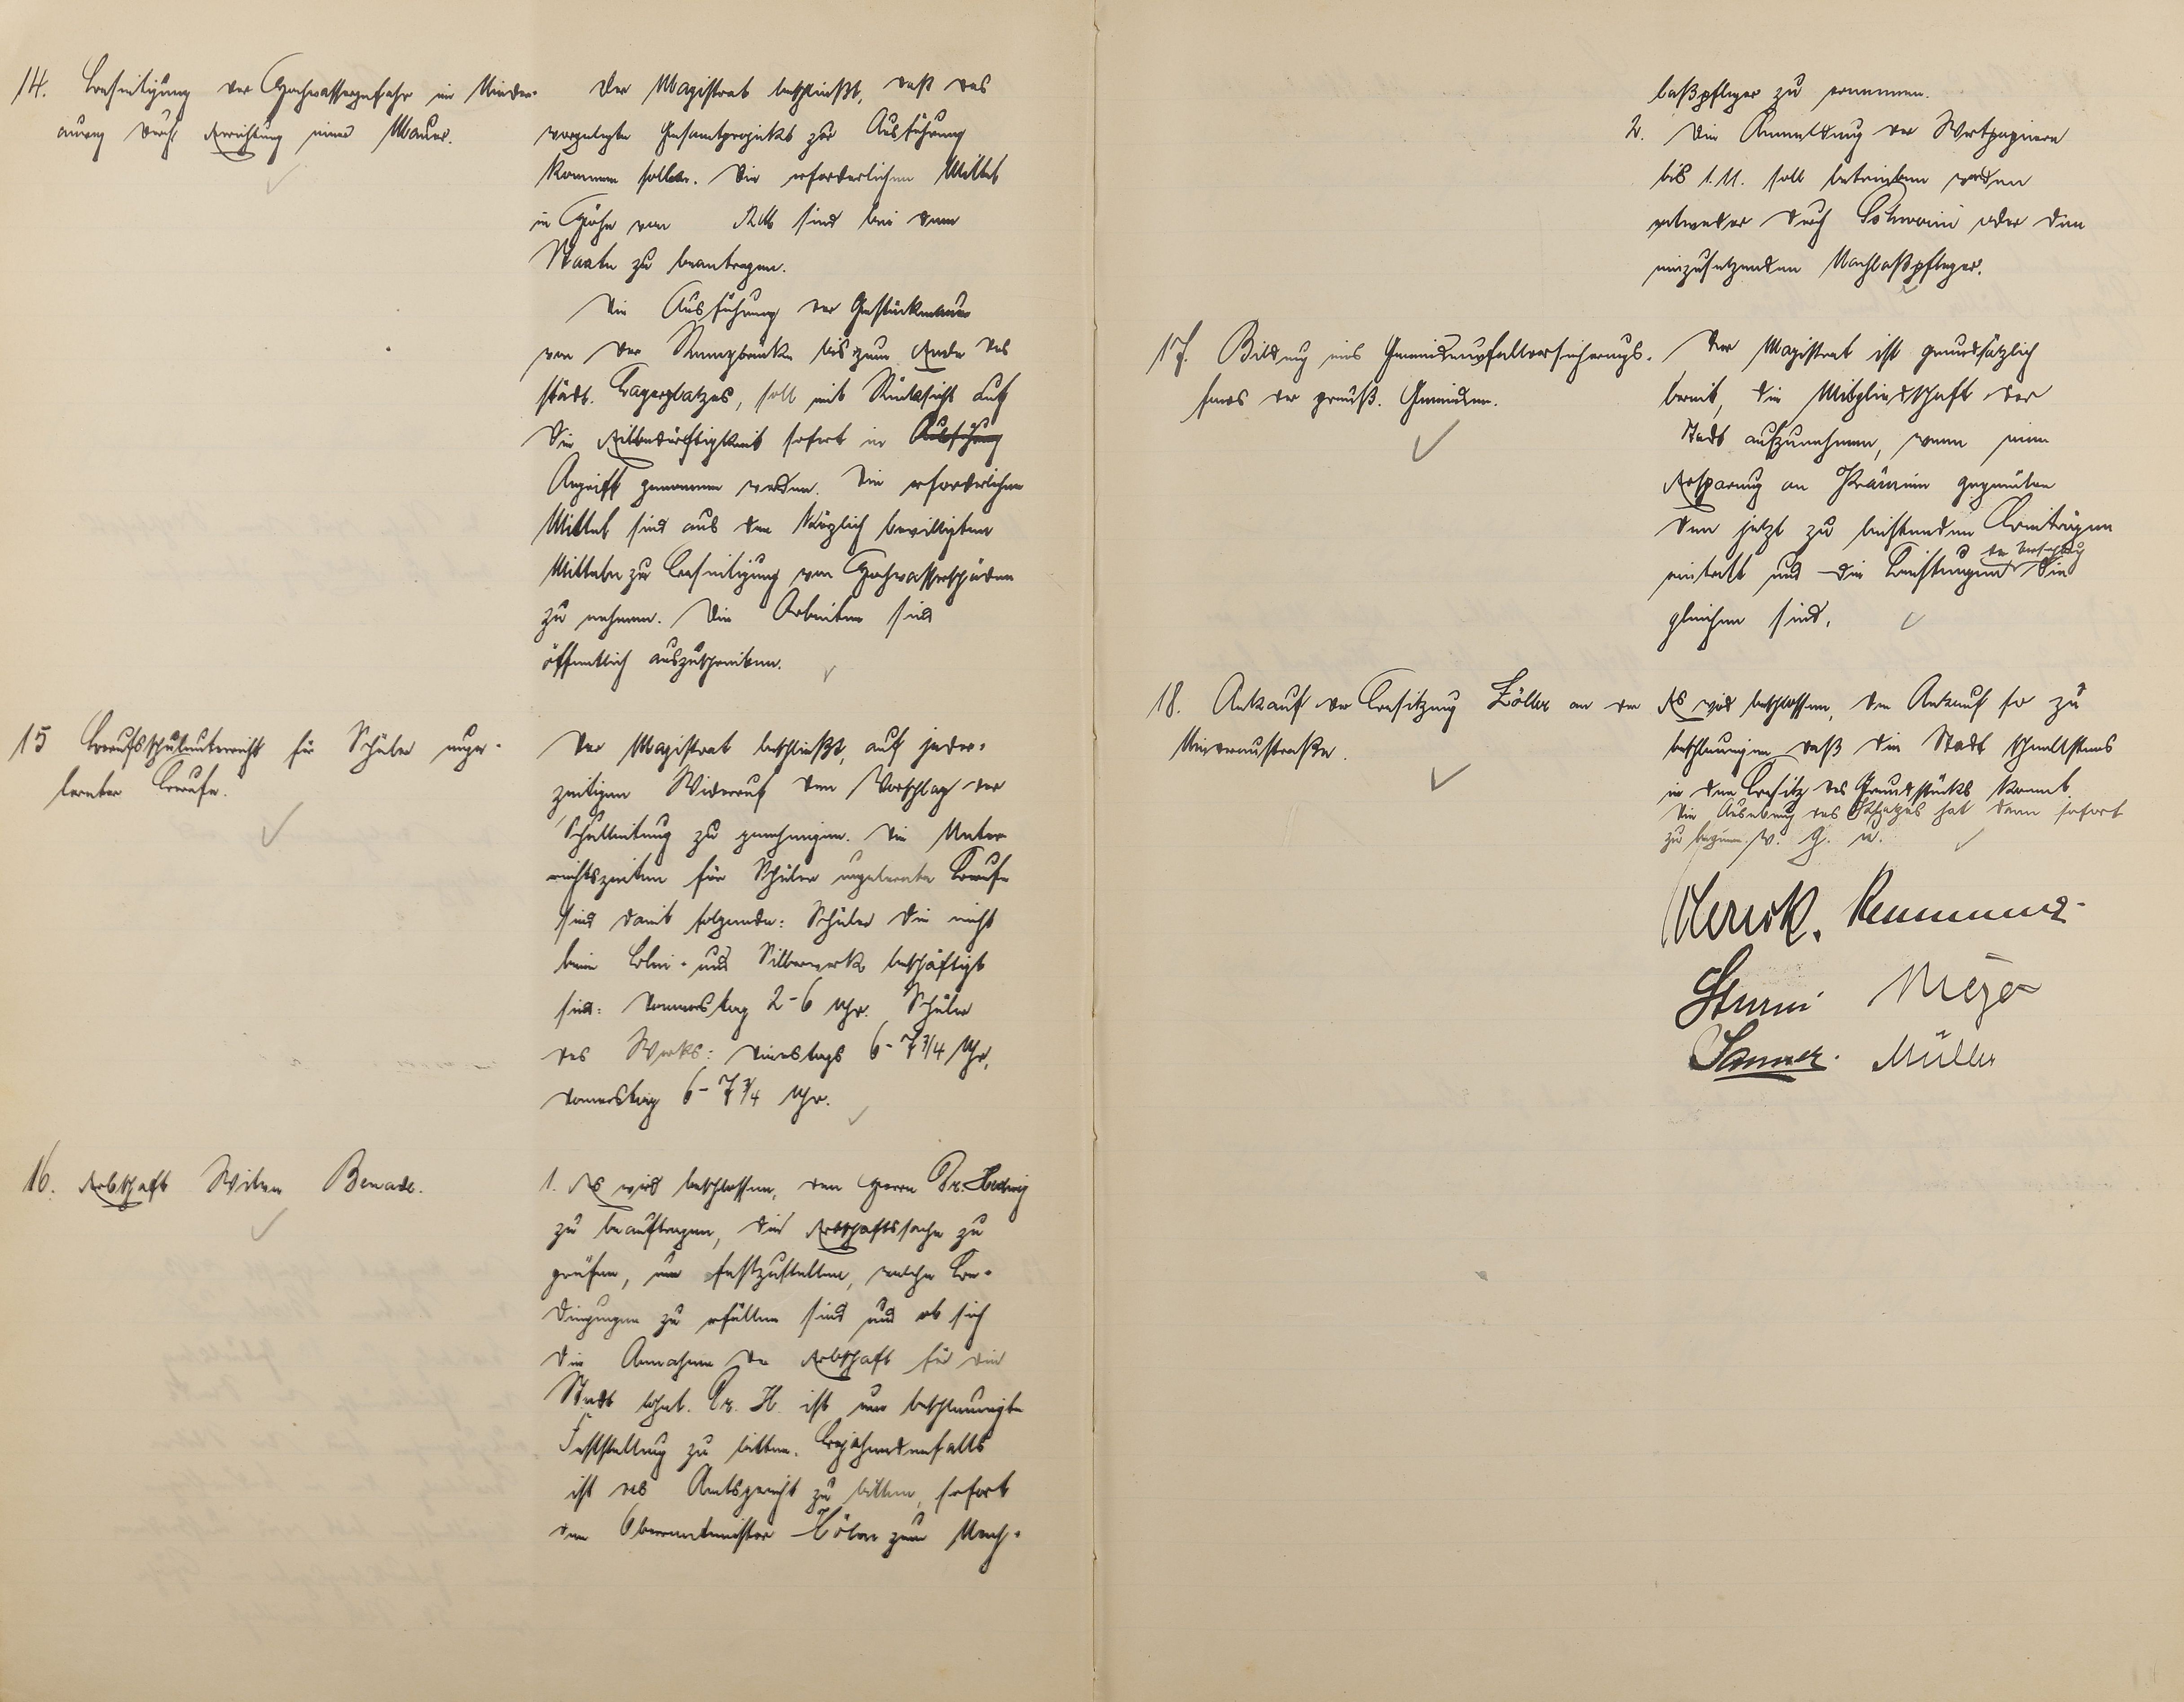 14. Beseitigung der Hochwassergefahr im Nieder-
aueweg durch Errichtung einer Mauer.
Der Magistrat beschließt, daß das
vorgelegte Gesamtprojekt zur Ausführung
kommen soll. Die erforderlichen Mittel
in Höhe von RM sind bei dem
Staate zu beantragen.
Die Ausführung der
von der bis zum Ende des
städt. Lagerplatzes, soll mit Rücksicht auf
die Eilbedürftigkeit sofort in Ausführung
Angriff genommen werden. Die erforderlichen
Mittel sind aus den kürzlich bewilligten
Mitteln zu Beseitigung von Hochwasserschäden
zu nehmen. Die Arbeiten sind
öffentlich auszuschreiben.
15 Berufsschulunterricht für Schüler unge-
lernter Berufe.
Der Magistrat beschließt, auf jeder-
zeitigen Widerruf den Vorschlag der
Schulleitung zu genehmigen. Die Unter
richtszeiten für Schüler ungelernter Berufe
sind damit folgende: Schüler die nicht
beim Blei- und Silberwerk beschäftigt
sind: Donnerstag 2-6 Uhr. Schüler
des Werks: Dienstags 6-7 3/4 Uhr,
Donnerstag 6-7 3/4 Uhr.
16. Erbschaft Witwe Benade.
1. Es wird beschlossen, den Herrn Dr.
zu beauftragen, die Erbschaftssache zu
prüfen, um festzustellen, welche Be-
dingungen zu erfüllen sind und ob sich
die Annahme der Erbschaft für die
Stadt lohnt. Dr. H. ist um beschleunigte
Feststellung zu bitten. Bejahendenfalls
ist das Amtsgericht zu bitten, sofort
den Oberrentmeister zum Nach-
laßpfleger zu ernennen.
2. Die Anmeldung der Wertpapiere
bis 1.11. soll betrieben werden
entweder durch oder den
einzusetzenden Nachlaßpfleger.
17. Bildung eines Gemeindeunfallversicherungs-
der preuß. Gemeinden.
Der Magistrat ist grundsätzlich
bereit, die Mitgliedschaft der
Stadt aufzunehmen, wenn eine
Ersparung an Prämien gegenüber
den jetzt zu leistenden Beiträgen
eintritt und die Leistungen der Versicherung die
gleichen sind.
18. Ankauf der Besitzung Zöller an der
Es wird beschlossen, den Ankauf so zu
beschleunigen, daß die Stadt schnellstens
in den Besitz des Grundstücks kommt.
Die des Platzes hat dann sofort
zu beginnen. V. g. u.
Sturm Meyer
Müller